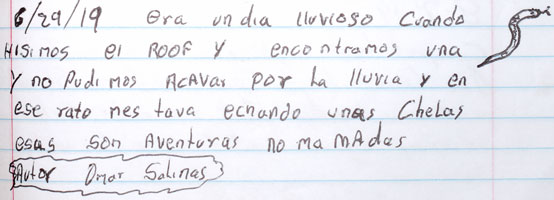 6/29/19 era un dia lluvioso Cuando
Hisimos el ROOF Y encontramos una
Y no Pudimos Acavar por La lluvia y en
ese rato nes tava echando unas Chelas
esas son Aventuras no mamAdas
Autor Omar Salinas